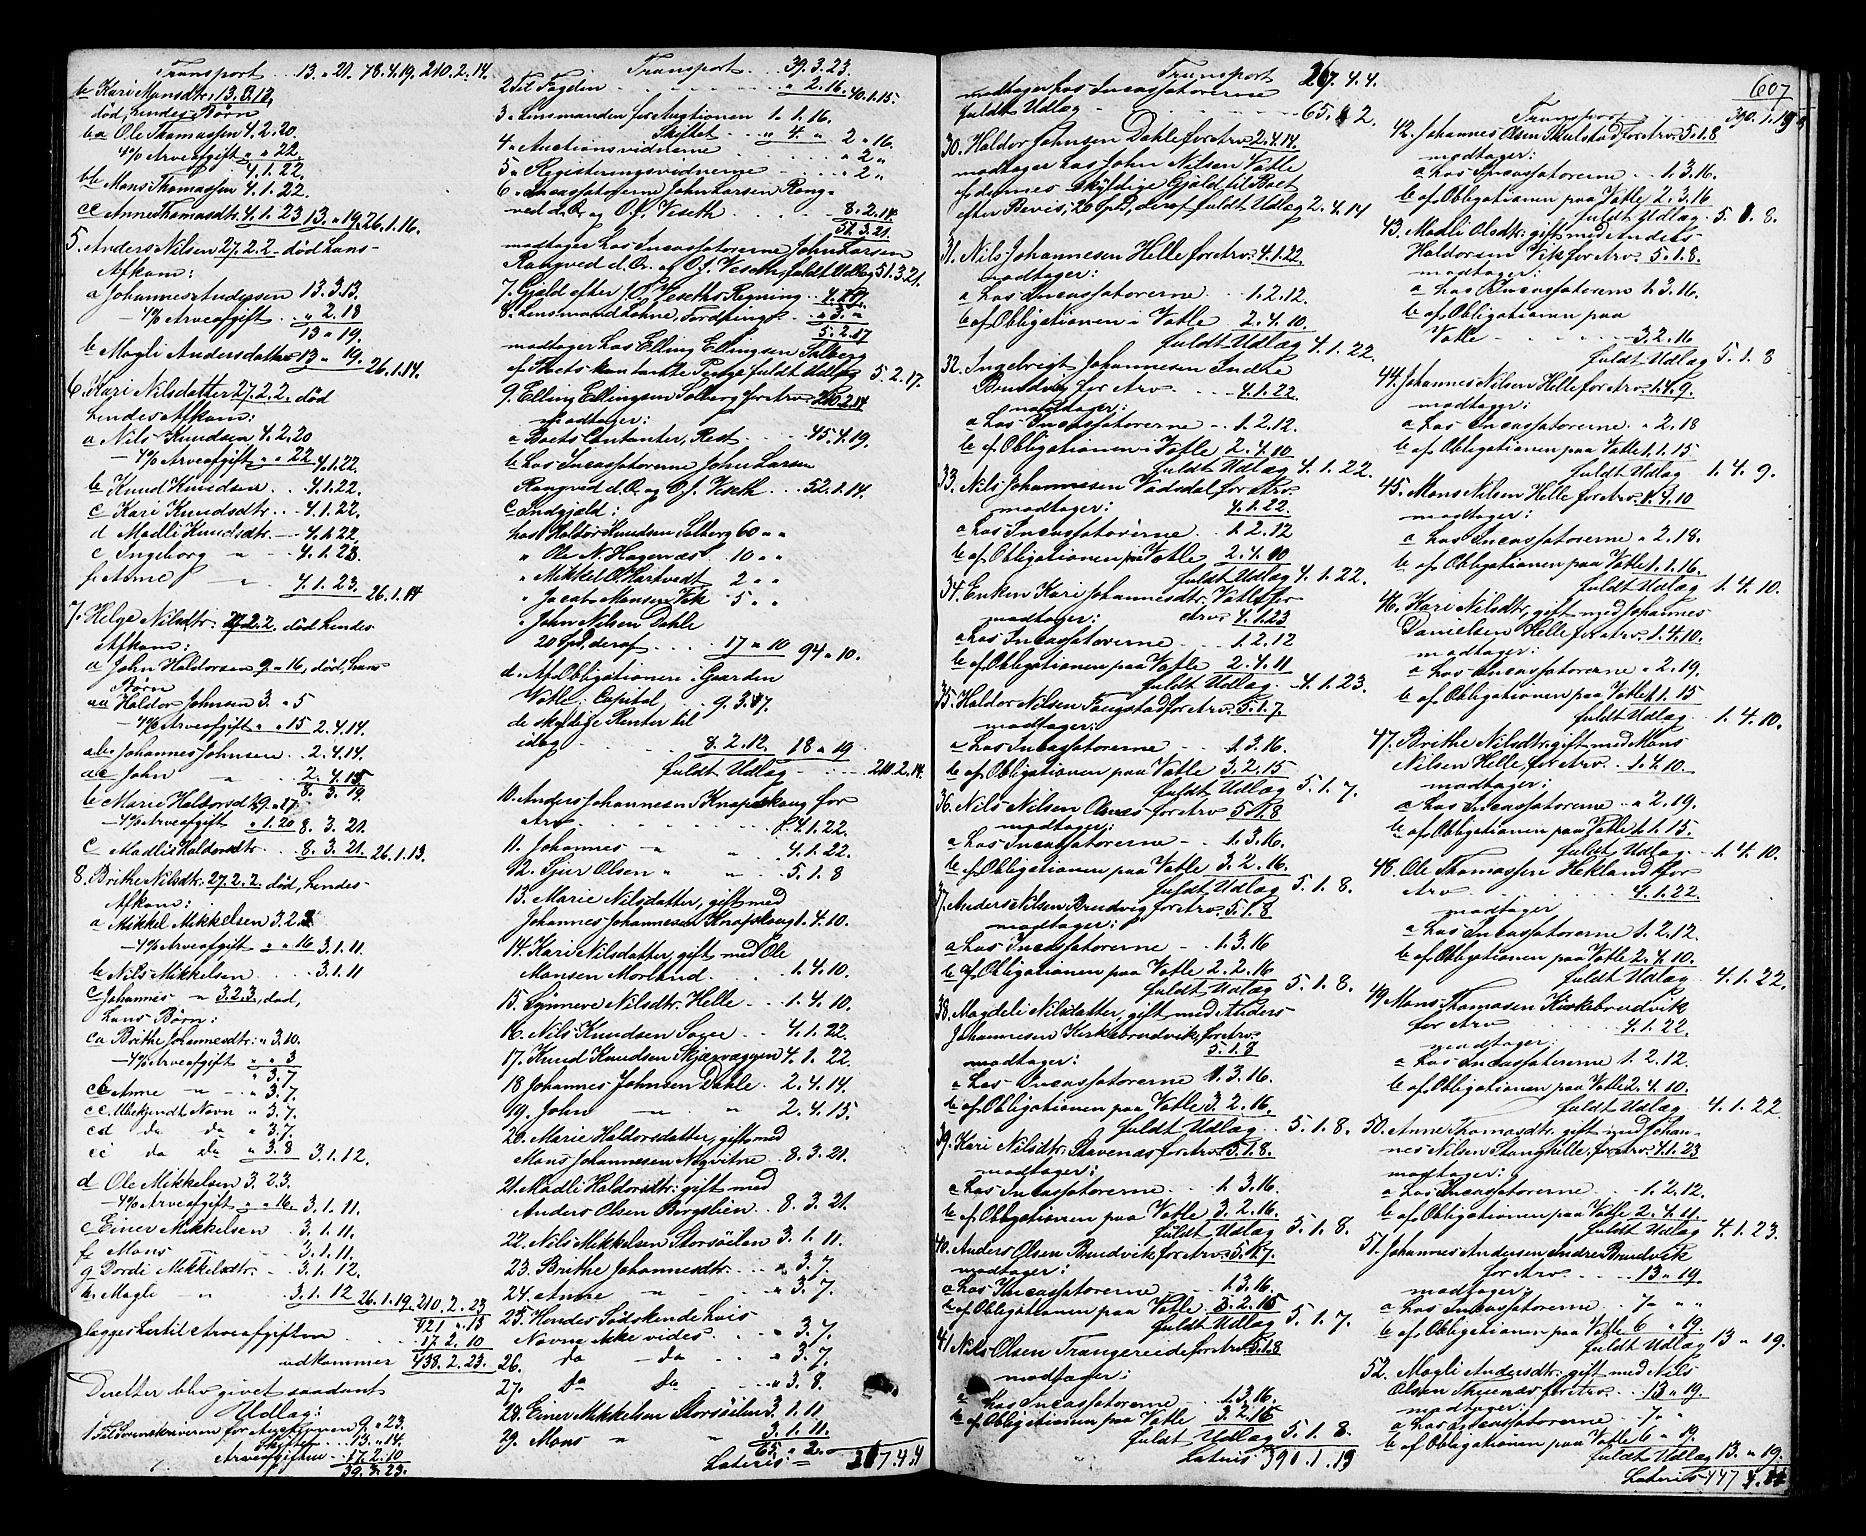 Transport . . 13. " 21. 78.4.19. 210.2.14.
b Kari Mansdtr. 13.0.13,
død, hendes Børn
ba Ole Thomassen 4.2.20
4% Arveafgift " " 22
4.1.22.
bb Mons Thomassen 4.1.22.
cc Anne Thomasdtr. 4.1.23 13. " 19. 26.1.16.
5. Anders Nilsen 27.2.2. død hans
Afkom:
a Johannes Andersen 13.3.13.
4% Arveafgift . . " 2.18
13 " 19.
b Magli Andersdatter 13 " 19. 26.1.14.
6. Kari Nilsdatter 27.2.2. død
hendes Afkom:
a Nils Knudsen 4.2.20
4% Arveafgift " " 22 4.1.22.
b Knud Knudsen . . 4.1.22.
c Kari Knudsdtr. . . 4.1.22.
d Madli Knudsdtr. — 4.1.22
e Ingeborg " — 4.1.23.
f Anne " 4.1.23. 26.1.14
7. Helge Nilsdtr. 27.2.2. død hendes
Afkom:
a John Haldorsen 9. " 16, død, hans
Børn
aa Haldor Johnsen 3. " 5
— 4% Arveafgift " " 15 2.4.14.
ab Johannes Johnsen . . 2.4.14.
ac John " . . 2.4.15
8.3.19.
b Marie Haldorsdt. 9. " 17.
— 4% Arveafgift " 1.20 8.3.21.
c Madli Haldorsdtr. . . 8.3.21. 26.1.13.
8. Brithe Nilsdtr. 27.2.2. død, hendes
Afkom:
a Mikkel Mikkelsen 3.2.3
— 4% Arveafgift " " 16 3.1.11.
b Nils Mikkelsen . . . 3.1.11
c Johannes " 3.2.3, død,
hans Børn:
ca Brithe Johannesdtr. " 3.10.
— 4% Arveafgift " " 3
" 3.7
cb Anne " — " 3.7.
cc Ubekjendt Navn " 3.7.
cd do do " 3.7.
ce do do " 3.8 3.1.12.
d Ole Mikkelsen 3.2.3.
— 4% Arveafgift " " 16. 3.1.11.
e Einer Mikkelsen . 3.1.11.
f Mons " 3.1.11.
g Dordi Mikkelsdtr. — 3.1.12.
h. Magli — " — 3.1.12 26.1.19. 210.2.23
421. " 13
lægges hertil Arveafgiften . . . 17.2.10
udkommer 438.2.23.
Derefter blev givet saadant
Udlæg:
1. Til Sorenskriveren for Auctionen 9. " 23.
Skiftet . . 13. " 14.
Arveafgiften . . 17.2.10
39.3.23.
Transport . . . 39.3.23.
2. Til Fogden . . . . " 2.16. 40.1.15.
3. Lensmanden for Auctionen 1.1.16.
Skiftet . . . " 4 " 2 " 16.
4. Auctionsvidnerne . . . " 2 "
5. Registeringsvidnerne . . . " 2 "
6. Incassatorerne John Larsen Rong-
ved d.Æ. og O. J. Viseth . . . 8.2.14.
51.3.21.
modtager hos Incassatorerne John Larsen
Rongved d.Æ. og O. J. Viseth, fuldt Udlæg 51.3.21.
7. Gjæld efter J. O. Viseths Regning . . 4.4.17.
8. Lensmand Lohne, Fordring . . " 3. "
5.2.17
modtager hos Elling Ellingsen Solberg
af Boets kontante Penge fuldt Udlæg 5.2.17.
9. Elling Ellingsen Solberg for Arv 210.2.14
modtager:
a Boets Contanter, Rest . . . 45.4.19.
b hos Incassatorerne John Larsen
Rongved d.Æ. og O. J. Viseth . . . 52.1.14.
c Indgjæld:
hos Haldor Knudsen Solberg 60 " "
" Ole N. Hagernæs 10 " "
" Mikkel O. Hartvedt 2 " "
" Jacob Monsen Vik 5 " "
" John Nilsen Dahle
20 Spd, deraf . . . . 17 " 10 94 " 10.
d. Af Obligationen i Gaarden
Votle: Capital . . . 9.3.17.
de skyldige Renter til
idag . . . . . 8.2.12. 18 " 19
fuldt Udlæg . . . . 210.2.14.
10. Anders Johannesen Knapskoug for
Arv . . . . . . 4.1.22.
11. Johannes " " . . 4.1.22.
12. Sjur Olsen " " . . 5.1.8
13. Marie Nilsdatter, gift med
Johannes Johannesen Knapskoug 1.4.10.
14. Kari Nilsdatter, gift med Ole
Monsen Morland . . . . 1.4.10.
15. Synneve Nilsdtr. Helle . . . 1.4.10.
16. Nils Knudsen . . 4.1.22.
17. Knud Knudsen Skjægvaggen 4.1.22.
18 Johannes Johnsen Dahle . 2.4.14.
19. John — " — " 2.4.15.
20. Marie Haldorsdatter, gift med
Mons Johannesen Nygvitne . . 8.3.21.
21. Madli Haldorsdtr: gift med
Anders Olsen Borgslien . . 8.3.21.
22. Nils Mikkelsen Storsøilen 3.1.11.
23. Brithe Johannesdtr. . . . " 3.7.
24. Anne — " — . . " 3.7.
25. Hendes Sødskende hvis
Navne ikke vides . . . " 3.7.
26. do — do . . . " 3.7.
27. do do . . " 3.8.
28. Einer Mikkelsen Storsøilen 3.1.11.
29. Mons " " 3.1.11.
65. " 2.
Lateris — 367.4.4
Transport 367.4.4.
modtager hos Incassatorerne
fuldt Udlæg . . . . . 65. " 2.
30. Haldor Johnsen Dahle for Arv 2.4.14.
modtager hos John Nilsen Votle
af dennes skyldige Gjæld til Boet
efter Bevis, 20 Spd, deraf fuldt Udlæg 2.4.14
31. Nils Johannesen Helle for Arv 4.1.22.
modtager:
a hos Incassatorerne . . 1.2.12.
b af Obligationen i Votle 2.4.10.
fuldt Udlæg 4.1.22.
32. Ingebrigt Johannesen Indre
Brudvig for Arv . . . . 4.1.22.
modtager:
a hos Incassatorerne . . 1.2.12.
b af Obligationen i Votle 2.4.10
fuldt Udlæg 4.1.22.
33. Nils Johannesen Vadsdal for Arv
modtager: 4.1.22.
a hos Incassatorerne . . 1.2.12
b af Obligationen paa Votle 2.4.10
fuldt Udlæg 4.1.22.
34. Enken Kari Johannesdtr. Votle for
modtager: Arv. 4.1.23
a hos Incassatorerne . . 1.2.12
b af Obligationen paa Votle 2.4.11
fuldt Udlæg . 4.1.23.
35. Haldor Nilsen Fougstad for Arv 5.1.7.
modtager:
a hos Incassatorerne . . 1.3.16.
b af Obligationen paa Votle 3.2.15
fuldt Udlæg 5.1.7.
36. Nils Nilsen Olsnes for Arv 5.1.8
modtager:
a hos Incassatorerne — 1.3.16.
b af Obligationen paa Votle 3.2.16.
fuldt Udlæg 5.1.8.
37. Anders Nilsen Brudvig for Arv 5.1.8
modtager:
a hos Incassatorerne — 1.3.16
b af Obligationen paa Votle 3.2.16
fuldt Udlæg 5.1.8.
38. Magdeli Nilsdatter, gift med Anders
Johannesen Kirkebrudvik for Arv
5.1.8
modtager:
a hos Incassatorerne 1.3.16.
b af Obligationen paa Votle 3.2.16.
fuldt Udlæg . . 5.1.8.
39. Kari Nilsdtr. Stavenæs for Arv 5.1.8.
modtager:
a hos Incassatorerne . . 1.3.16.
b af Obligationen paa Votle 3.2.16.
fuldt Udlæg 5.1.8.
40. Anders Olsen Brudvik for Arv 5.1.7.
modtager:
a hos Incassatorerne . . 1.3.16.
b af Obligationen paa Votle 3.2.15
fuldt Udlæg 5.1.7.
41. Nils Olsen Trangereide for Arv 5.1.8
modtager:
a hos Incassatorerne . . 1.3.16.
b af Obligationen paa Votle 3.2.16
fuldt Udlæg 5.1.8.
Lateris 390.1.19
607
Transport . . . . 390.1.19
42. Johannes Olsen Skulstad for Arv 5.1.8
modtager:
a hos Incassatorerne . . 1.3.16.
b af Obligationen paa Votle 3.2.16
fuldt Udlæg 5.1.8.
43. Madli Olsdtr. gift med Anders
Haldorsen Vik for Arv 5.1.8.
modtager:
a hos Incassatorerne 1.3.16.
b af Obligationen paa
Votle . . . . 3.2.16
fuldt Udlæg 5.1.8
44. Johannes Nilsen Helle for Arv 1.4.9.
modtager:
a hos Incassatorerne . " 2.18
b af Obligationen paa Votle 1.1.15
fuldt Udlæg 1.4.9.
45. Mons Nilsen Helle for Arv 1.4.10
modtager:
a hos Incassatorerne " 2.18.
b af Obligationen paa Votle 1.1.16.
fuldt Udlæg 1.4.10.
46. Kari Nilsdtr. gift med Johannes
Danielsen Helle for Arv 1.4.10.
modtager:
a hos Incassatorerne " 2.19.
b af Obligationen paa Votle 1.1.15
fuldt Udlæg . 1.4.10.
47. Brithe Nilsdtr. gift med Mons
Nilsen Helle, for Arv 1.4.10.
modtager:
a hos Incassatorerne . " 2.19.
b af Obligationen paa Votle 1.1.15.
fuldt Udlæg . . 1.4.10.
48. Ole Thomassen Hekland for
Arv . . . . 4.1.22.
modtager
a hos Incassatorerne 1.2.12.
b af Obligationen paa Votle 2.4.10.
fuldt Udlæg 4.1.22.
49. Mons Thomasen Kirkebrudvik
for Arv . . . . 4.1.22.
modtager:
a hos Incassatorerne 1.2.12.
b af Obligationen paa Votle 2.4.10.
fuldt Udlæg . 4.1.22
50. Anne Thomasdtr. gift med Johan-
nes Nilsen Stanghelle, for Arv 4.1.23
modtager:
a hos Incassatorerne . . 1.2.12.
b af Obligationen paa Votle 2.4.11.
fuldt Udlæg 4.1.23.
51. Johannes Andersen Indre Brudvik
for Arv . . . . 13 " 19.
modtager:
a hos Incassatorerne . 7 " " "
b af Obligationen paa Votle 6 " 19.
fuldt Udlæg 13 " 19.
52. Magli Andersdtr. gift med Nils
Olsen Thuenæs for Arv . . 13 " 19.
modtager:
a hos Incassatorerne . . 7 " "
b af Obligationen paa Votle 6 " 19.
fuldt Udlæg 13. " 19.
Lateris 447